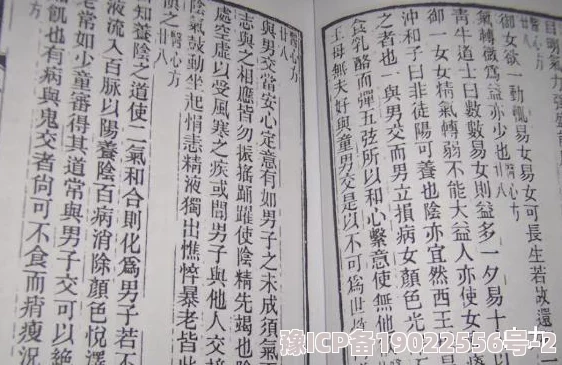 目明氣力強盛
御女欲一動輒易女易女可長生若故還
氣轉微為益亦少也 醫心方 廿八
青牛道士曰數數易女則益多一夕易十
御一女女精氣轉弱不能大益人亦使女
沖和子曰非徒陽可養也陰亦宜然西王
之者也一與男交而男立損病女顏色光
食乳酪而彈五弦所以和心繫意使無他
王母無夫好與童男交是以不可為世
醫心方 廿八
與男交當安心定意有如男子之未成須氣
志與之相應皆勿振搖踊躍使陰精先竭也
處空虛以受風寒之疾或聞男子與他人交接
陰氣鼓動坐起悁恚精液獨出憔悴暴老皆此
慎之 醫心方 廿八
知養陰之道使二氣和合則化為男子若不
液流入百脈以陽養陰百病消除顏色悅澤
老常如少童審得其道常與男子交可以絕
飢也有病與鬼交者尚可不食而痟瘦況
豫ICP备19022556号-2